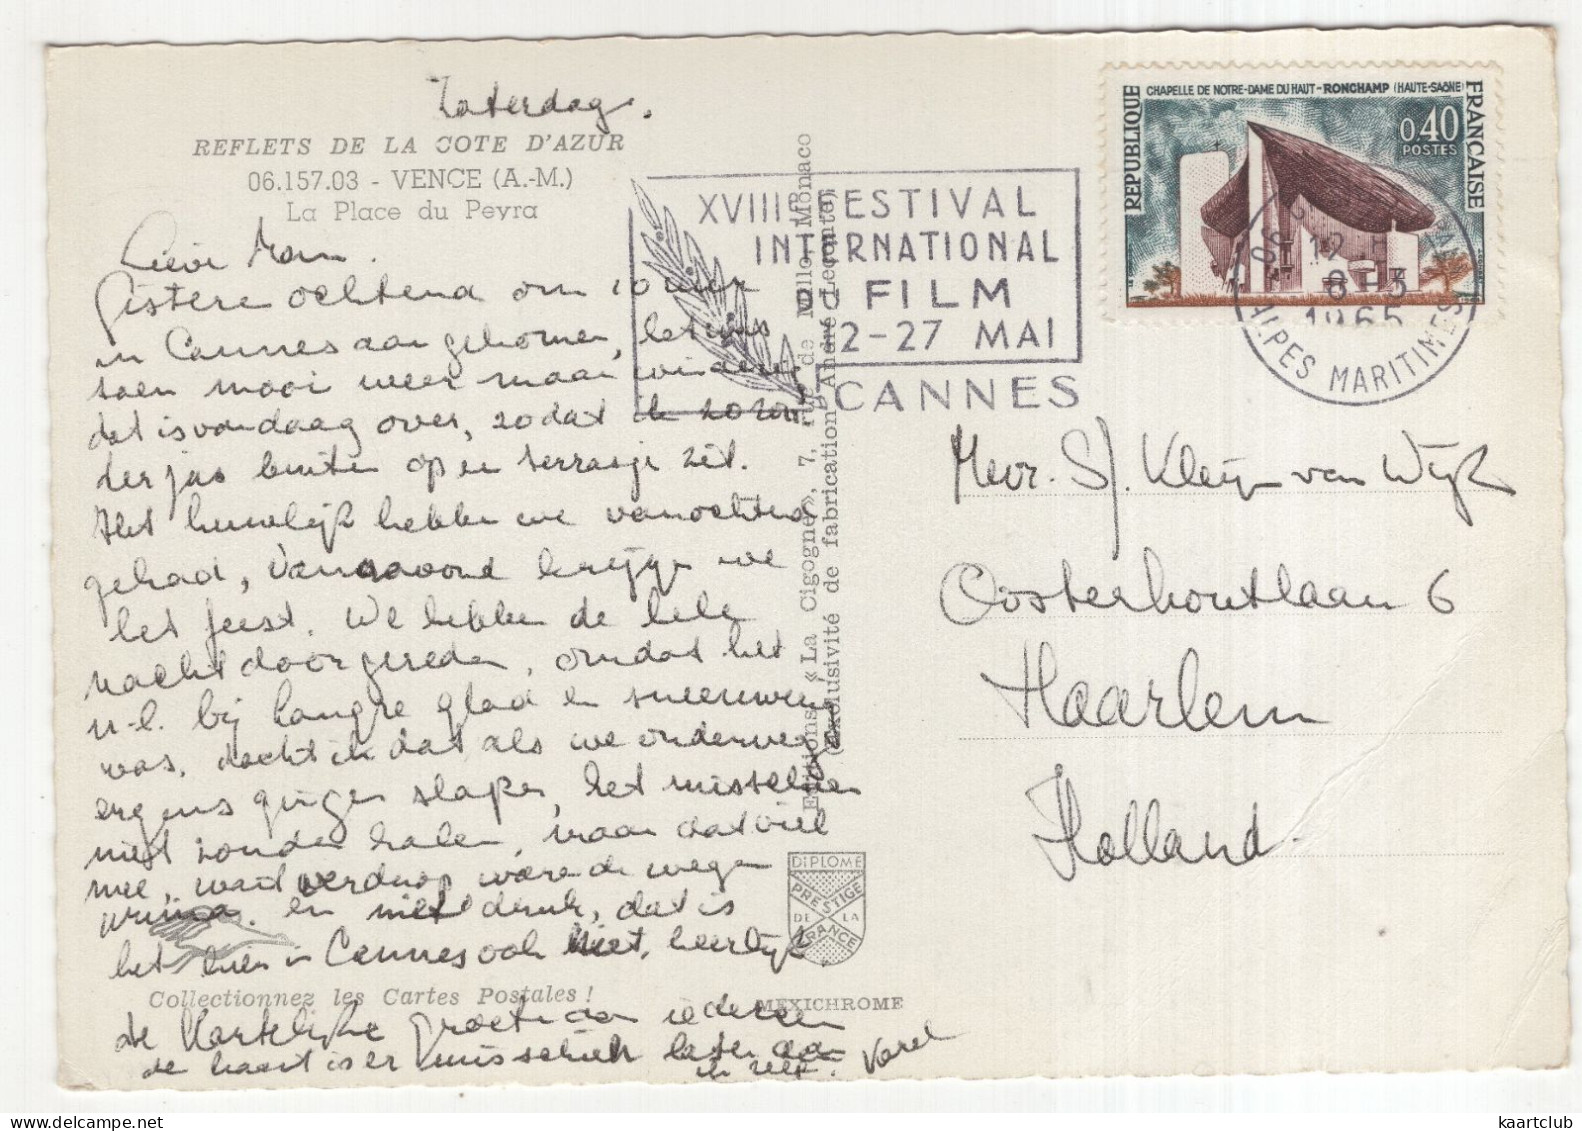 Zaterdag.
REFLETS DE LA COTE D'AZUR
06.157.03 - VENCE (A.-M.)
La Place du Peyra
Lieve Mam.
Gisteren ochtend om 10 uur
in Cannes aangekomen,
toen mooi weer maar
dat is vandaag over, zodat ik zo zon
der jas buiten op een terrasje zit.
Het huwelijk hebben we vanochtend
gehad, vanavond krijgen we
het feest. We hebben de hele
nacht doorgereden, omdat het
n-l. bij Langre glad en sneeuwerig
was, dacht ik dat als we onderweg
ergens gingen slapen, het misschien
niet zouden halen, maar dat viel
mee, want verderop waren de wegen
prima. en niet druk, dat is
het hier in Cannes ook niet, heerlijk.
Collectionnez les Cartes Postales !
de Hartelijke groeten aan iedereen
de kaart is er misschien later dan
ik zelf. Karel
Editions « La Cigogne », 7, rue de Millo, Monaco
(exclusivité de fabrication André Leconte)
DIPLOME
PRESTIGE
DE LA
FRANCE
MEXICHROME
XVIIIe FESTIVAL
INTERNATIONAL
DU FILM
12-27 MAI
CANNES
CHAPELLE DE NOTRE-DAME DU HAUT - RONCHAMP (HAUTE-SAÔNE)
REPUBLIQUE
FRANÇAISE
0,40
POSTES
12 H
8-3
1965
ALPES MARITIMES
Mevr. S. Kleijn van Wijk
Oosterhoutlaan 6
Haarlem
Holland.
kaartclub